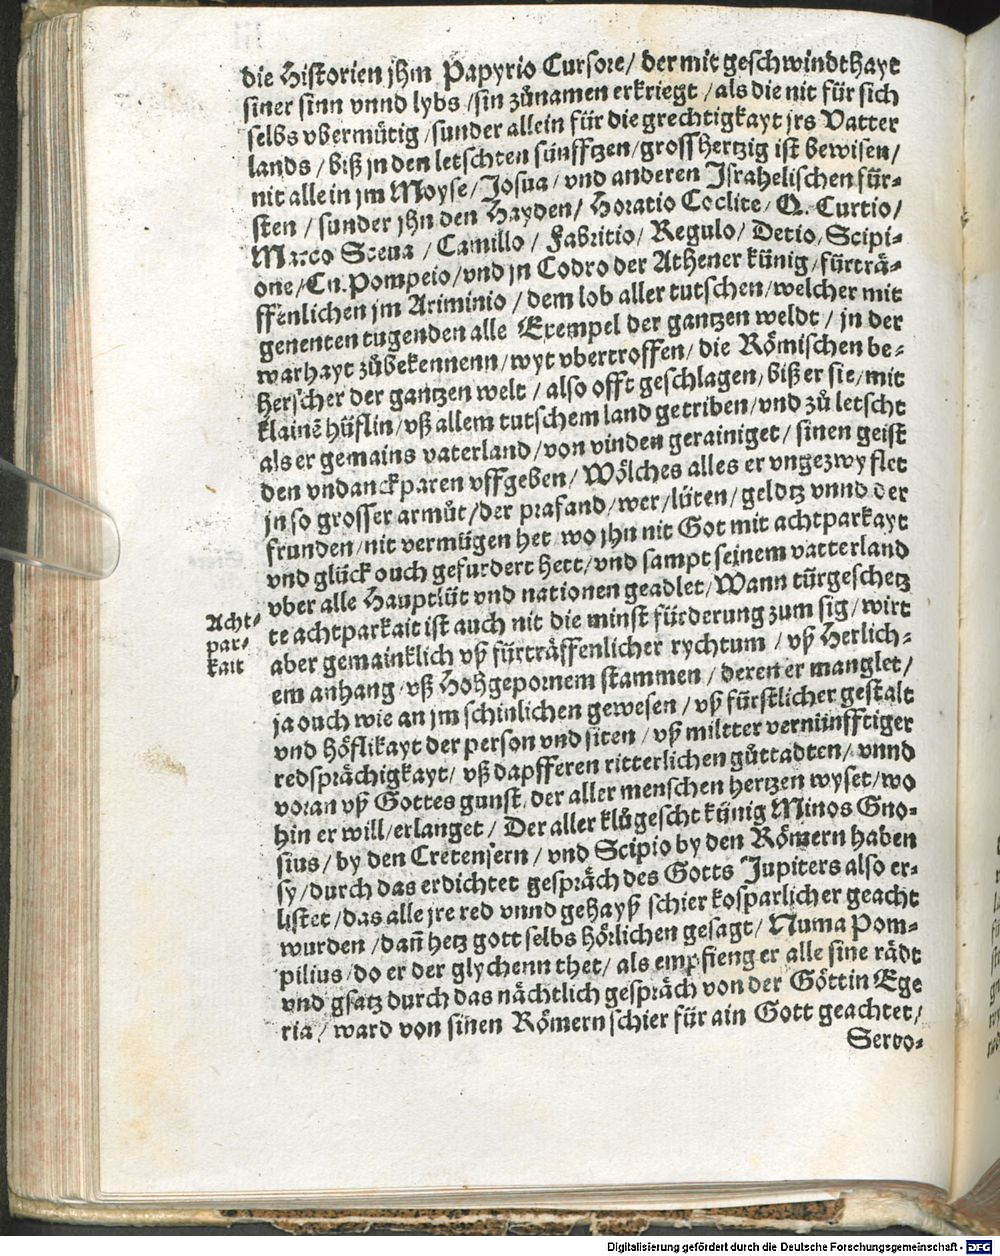 die Historien jhm Papyrio Cursore/ der mit geschwindthayt
siner sinn vnnd lybs /sin zůnamen erkriegt /als die nit für sich
selbs vbermütig /sunder allein für die grechtigkayt jrs Vatter
lands / biß jn den letschten sünfftzen/grosshertzig ist bewisen/
nit allein jm Moyse/Josua/ vnd anderen Israhelischen für-
sten / sunder jhn den Hayden/ Horatio Coclite/ Q. Curtio/
Marco Sceua / Camillo / Fabritio/ Regulo/ Detio, Scipi-
one/Cn. Pompeio/vnd jn Codro der Athener künig/fürträ-
ffenlichen jm Ariminio / dem lob aller tutschen/welcher mit
genenten tugenden alle Exempel der gantzen weldt / jn der
warhayt zůbekennenn/wyt vbertroffen/ die Römischen be-
herscher der gantzen welt / also offt geschlagen/biß er sie/mit
klainē hüflin/vß allem tutschem land getriben/vnd zů letscht
als er gemains vaterland/von vinden gerainiget/ sinen geist
den vndanckparen vffgeben/ Wölches alles er vngezwyflet
jn so grosser armůt/der prafand/wer/lüten/geldtz vnnd der
frunden/nit vermügen het/wo jhn nit Got mit achtparkayt
vnd glück ouch gefurdert hett/vnd sampt seinem vatterland
vber alle Hauptlüt vnd nationen geadlet/Wann türgeschetz
Acht-
par-
kait
te achtparkait ist auch nit die minst fürderung zum sig/ wirt
aber gemainklich vß fürträffenlicher rychtum / vß Herlich-
em anhang/vß Hohgepornem stammen/ deren er manglet/
ja ouch wie an jm schinlichen gewesen/ vß fürstlicher gestalt
vnd höflikayt der person vnd siten / vß miltter vernünfftiger
redsprächigkayt/ vß dapfferen ritterlichen gůttadten/ vnnd
voran vß Gottes gunst/der aller menschen hertzen wyset/wo
hin er will/erlanget/ Der aller klůgescht künig Minos Gno-
sius/by den Cretensern/ vnd Scipio by den Römern haben
sy/durch das erdichtet gespräch des Gotts Jupiters also er-
listet/das alle jre red vnnd gehayß schier kosparlicher geacht
wurden /dañ hetz gott selbs hörlichen gesagt/ Numa Pom-
pilius/do er der glychenn thet/ als empfieng er alle sine rädt
vnd gsatz durch das nächtlich gespräch von der Göttin Ege
ria/ ward von sinen Römern schier für ain Gott geachtet/
Servo-
Digitalisierung gefördert durch die Deutsche Forschungsgemeinschaft - DFG